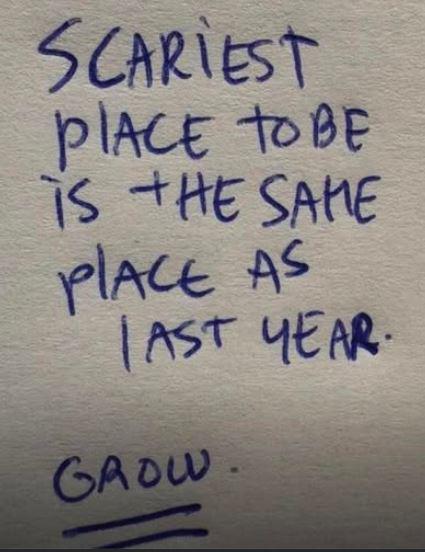 SCARIEST
PLACE TO BE
iS tHE SAME
PLACE AS
lAST YEAR.
GROW.